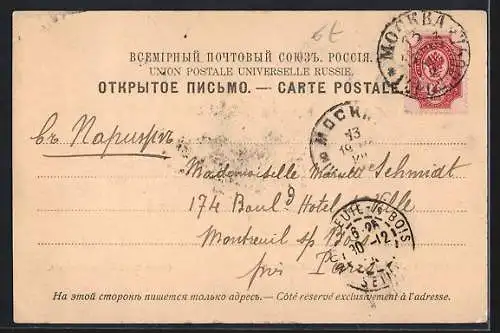 6t
МОСКВА
ВСЕМІРНЫЙ ПОЧТОВЫЙ СОЮЗЪ. РОССІЯ.
UNION POSTALE UNIVERSELLE RUSSIE.
ОТКРЫТОЕ ПИСЬМО. — CARTE POSTALE
МОСКВ
13
19
въ Парижъ
Mademoiselle Schmidt
174 Boul. Hotel Ville
Montreuil s/
près Paris
BOIS
SEINE
На этой сторонѣ пишется только адресъ. — Côté réservé exclusivement à l'adresse.